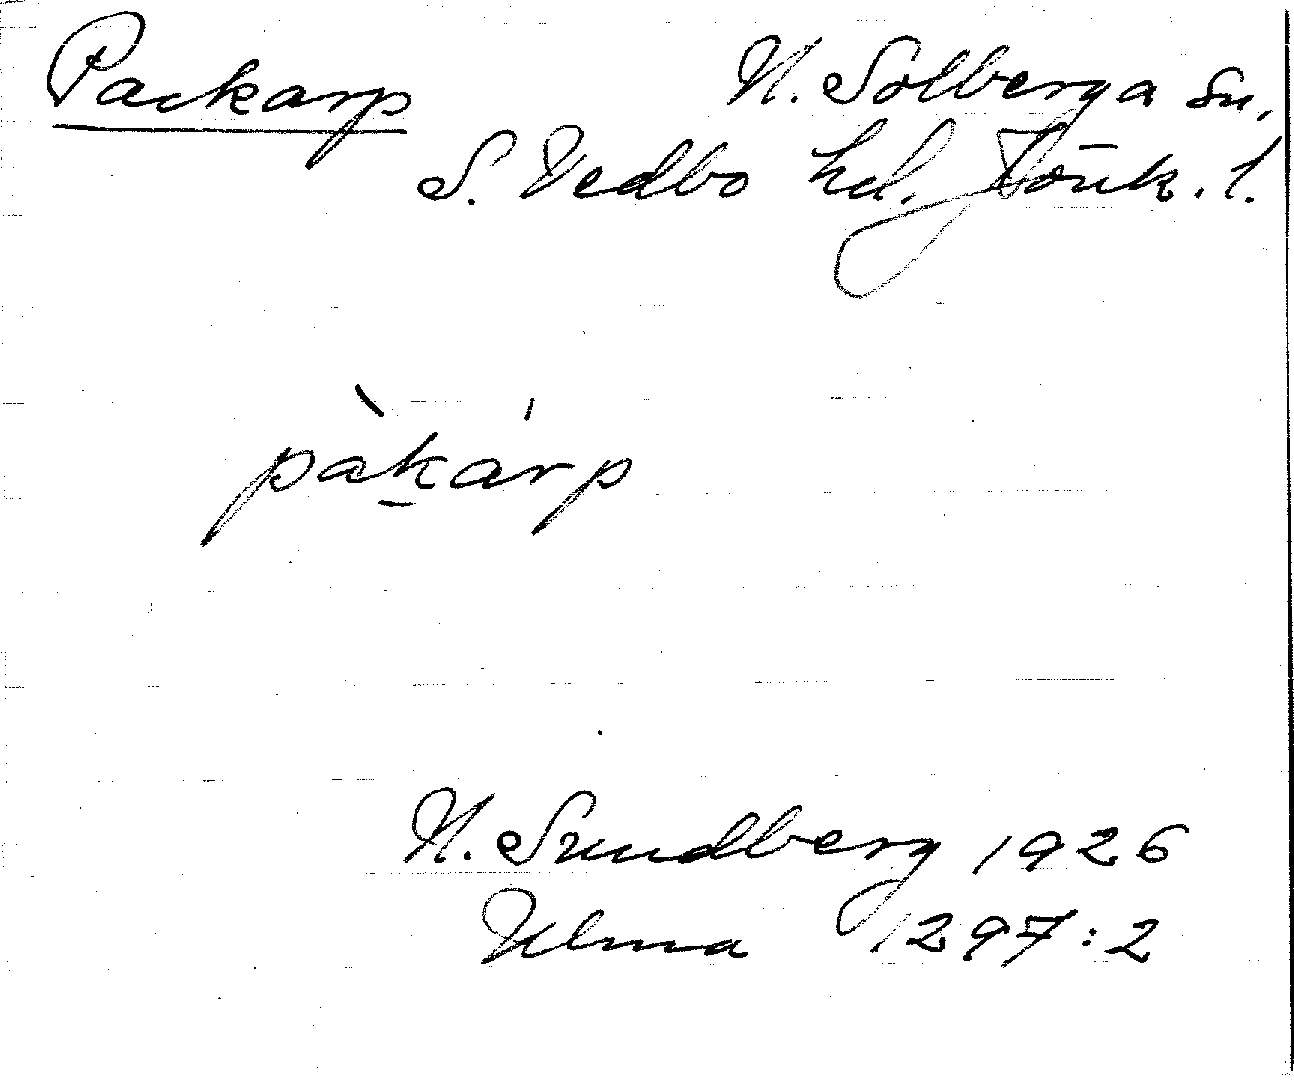 Packarp N. Solberga sn.
S. Vedbo hd. Jönk. l.
pàk̲árp
N. Sundberg 1926
Ulma 1297:2